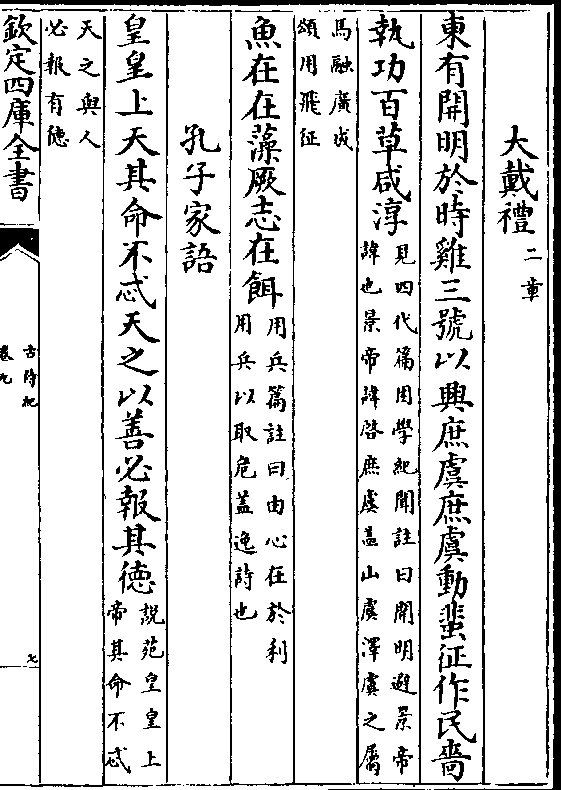 大戴禮二章
東有開明於時雞三號以興庶虞庶虞動蜚征作民嗇
執功百草咸淳見四代篇困學紀聞註曰開明避景帝
諱也景帝諱啓庶虞蓋山虞澤虞之屬
馬融廣成
頌用飛征
魚在在藻厥志在餌用兵篇註曰由心在於利
用兵以取危蓋逸詩也
孔子家語
皇皇上天其命不忒天之以善必報其德說苑皇皇上
帝其命不忒
天之與人
必報有德
欽定四庫全書
古詩紀
卷九
七